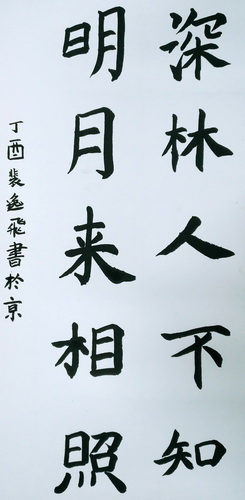 深林人不知
明月来相照
丁酉裴逸飛書於京